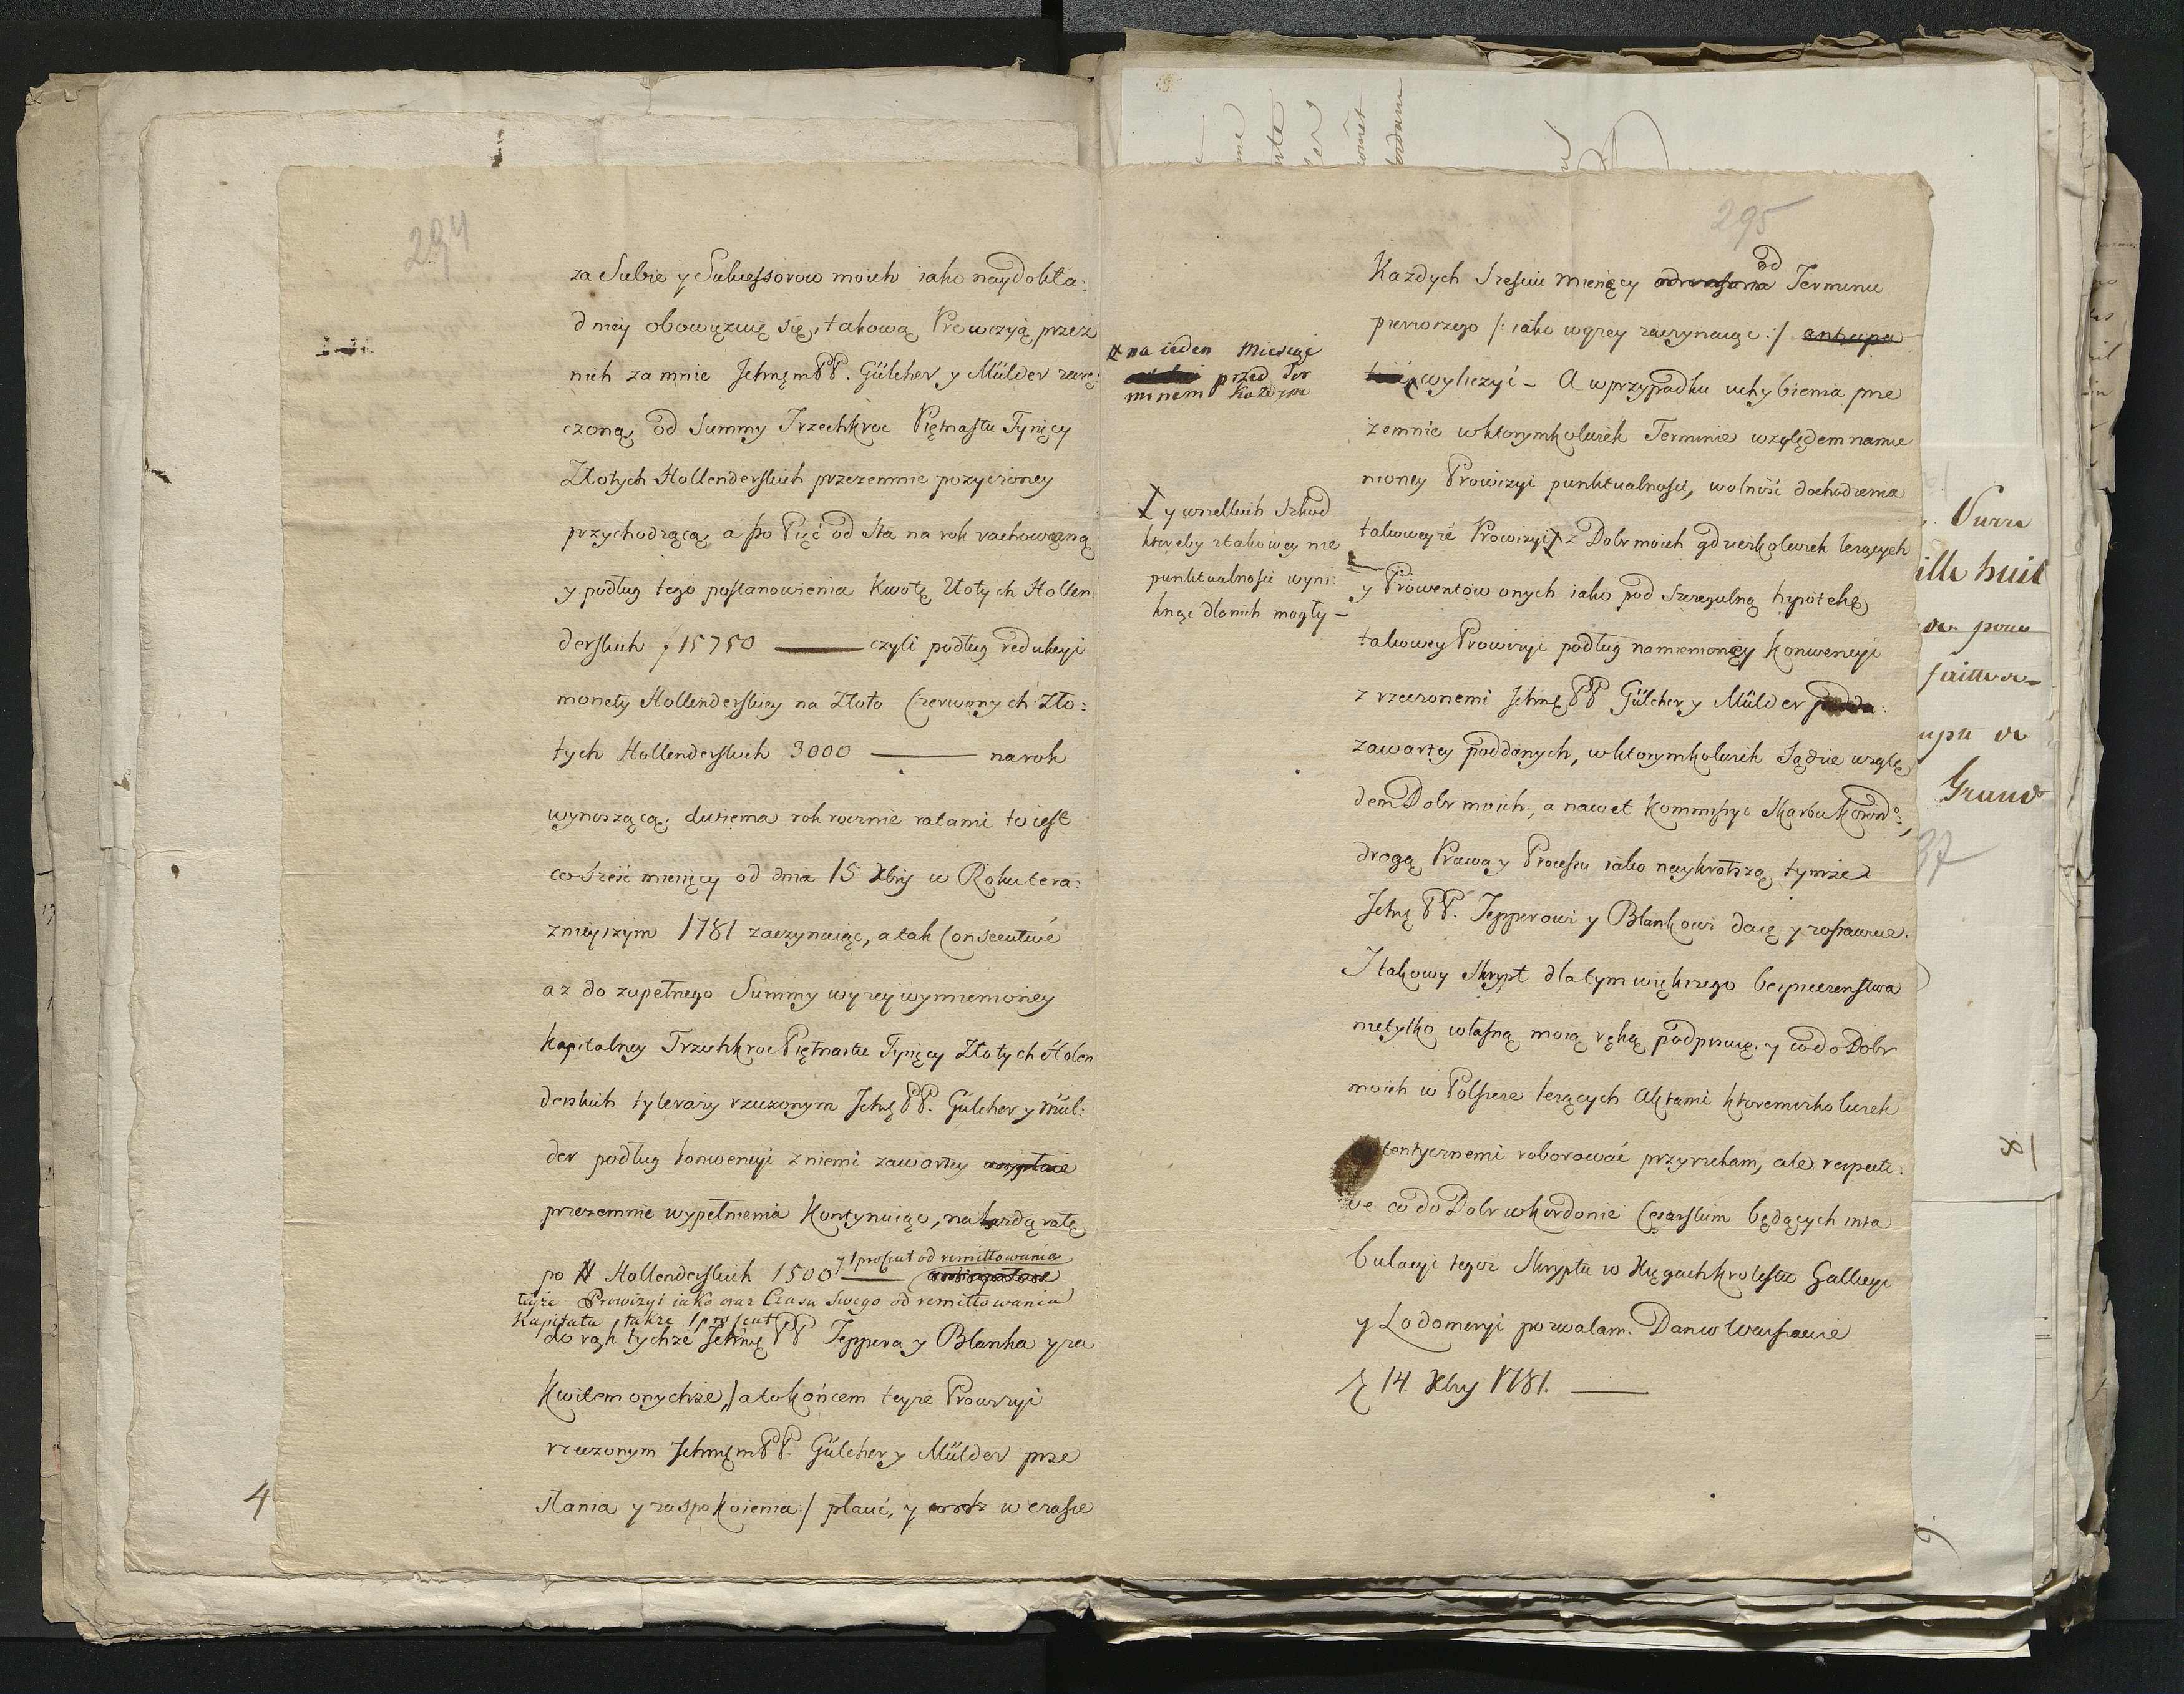 294
za Siebie y Sukcessorow moich iako naydokła:
dniey obowięzuię się, takową Prowizyią przez
nich za mnie Ichmęm PP. Gülcher y Mülder zarę:
czoną, od Summy Trzechkroc Piętnastu Tysięcy
Złotych Hollenderskich przezemnie pozyczoney
przychodzącą, a po Pięć od Sta na rok rachowaną
y podług tego postanowienia Kwotę Złotych Hollen
derskich f 15750 — czyli podług redukcyi
monety Hollenderskiey na Złoto Czerwonych Zło:
tych Hollenderskich 3000 — na rok
wynoszącą, dwiema rok rocznie ratami to iest
co sześć miesięcy od dnia 15 Xbris w Roku tera:
znieyszym 1781 zaczynaiąc, a tak Consecutive
az do zupełnego Summy wyzey wymienioney
Kapitalney Trzechkroc Piętnastu Tysięcy Złotych Holen
derskich tylerazy rzeczonym Ichmę PP. Gülcher y Mül:
der podług konwencyi z niemi zawartey
przezemnie wypełnienia kontynuiąc, na kazdą ratę
y 1 procent od remittowania
po # Hollenderskich 1500 —
teyże Prowizyi iako oraz Czasu Swego od remittowania
Kapitału takze 1 procent
do rąk tychże Ichmę PP Teppera y Blanka y za
Kwitem onychże, /a to końcem teyże Prowizyi
rzeczonym Ichmęm PP. Gülcher y Mülder prze
słania y zaspokoienia:/ płacić, y w czasie
4
295
Kazdych Szesciu Miesięcy od Terminu
pierwszego /: iako wyzey zaczynaiąc :/ antycypa
# na ieden Miesiąc
przed Ter
minem Kazdym
wyliczyć – A w przypadku uchybienia prze
zemnie w ktorymkolwiek Terminie względem namie
nioney Prowizyi punktualnosci, wolność dochodzenia
takoweyże Prowizyi z Dobr moich gdzieżkolwiek lezących
y wszelkich Szkod
ktoreby z takowey nie
punktualnosci wyni:
knąc dla nich mogły –
y Prowentów onych iako pod Szczegulną hypotekę
takowey Prowizyi podług namienioney Konwencyi
z rzeczonemi Ichmę PP Gülcher y Mülder
zawartey poddanych, w ktorymkolwiek Sądzie wzglę
dem Dobr moich, a nawet Kommissyi Skarbu Koron:,
drogą Prawa y Processu iako naykrotszą tymże
Ichmę PP. Tepperowi y Blankowi daię y zostawuię.
I takowy Skrypt dla tym większego bespieczenstwa
nietylko własną moią ręką podpisuię. y co do Dobr
moich w Polszcze lezących Aktami ktoremiżkolwiek
tentycznemi roborować przyrzekam, ale respecti:
ve co do Dobr w kordonie Cesarskim będących inta
bulacyi tegoz Skryptu w Xięgach krolestw Gallicyi
y Lodomeryi pozwalam. Dan w Warszawie
d. 14. Xbris 1781. —
Grand
37